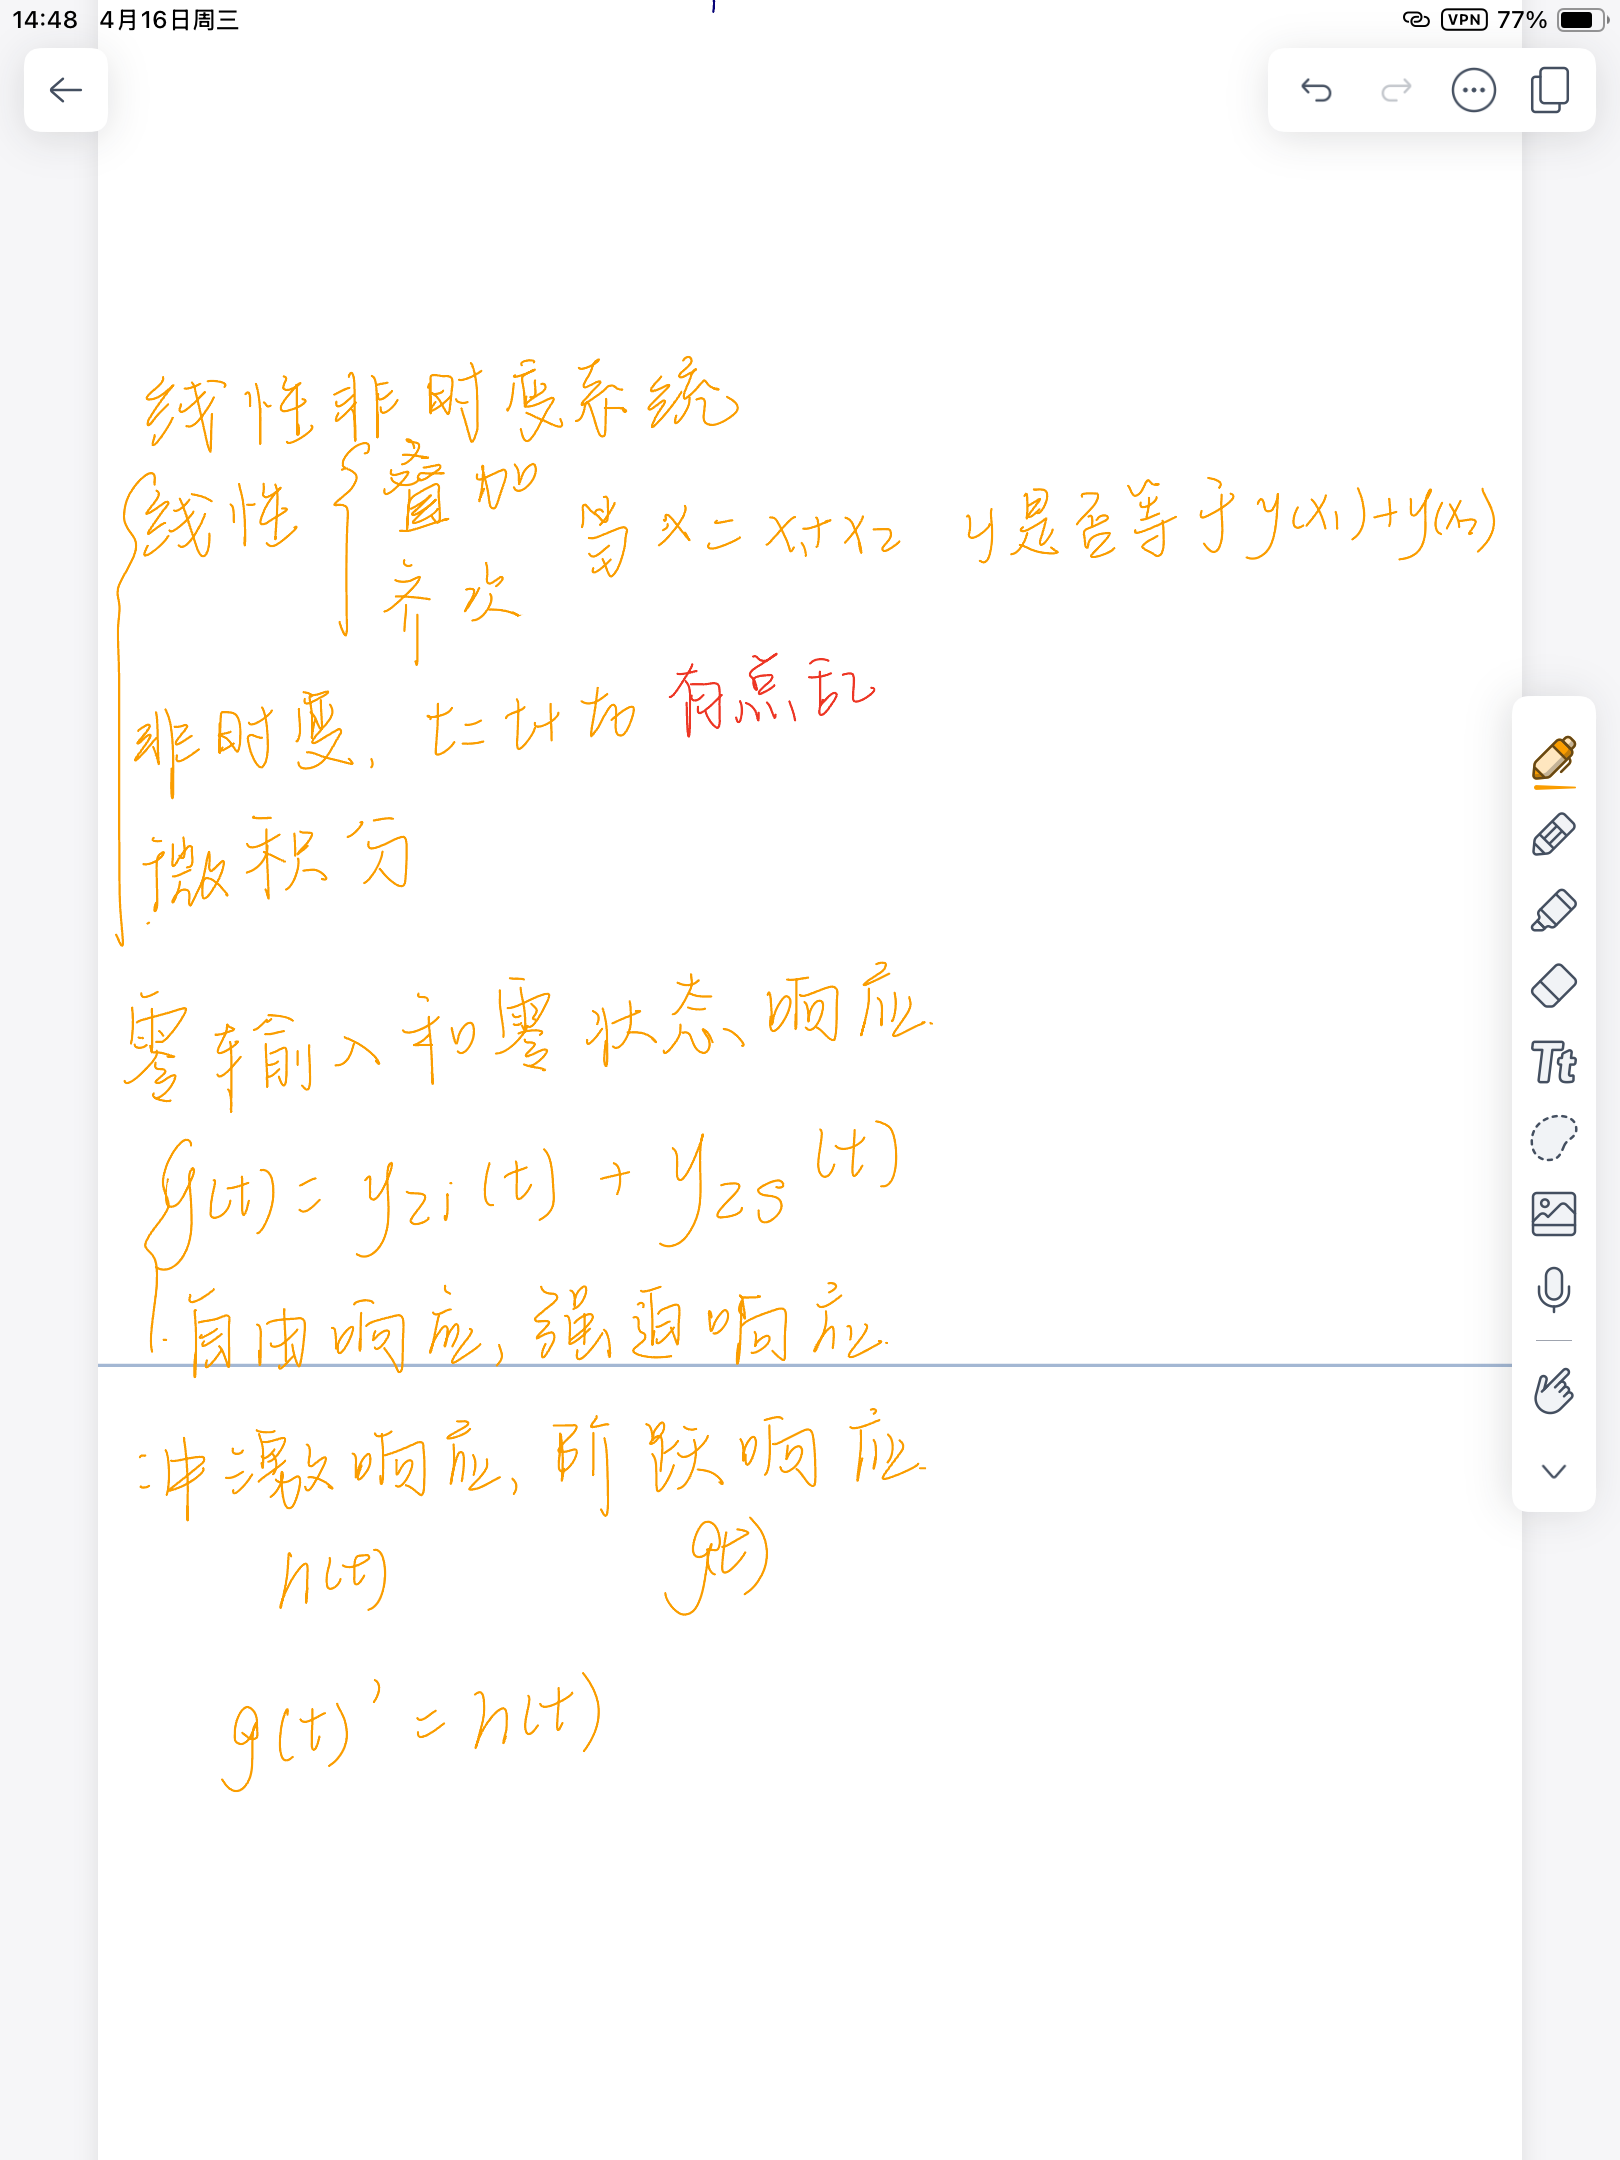 14:48 4月16日周三
VPN 77%
线性非时变系统
线性 { 叠加
当 x = x₁+x₂ y是否等于 y(x₁)+y(x₂)
齐次
非时变, t=t+t₀ 有点乱
微积分
零输入和零状态响应.
y(t) = yzi(t) + yzs(t)
自由响应, 强迫响应.
冲激响应, 阶跃响应.
h(t) g(t)
g(t)' = h(t)
Tt